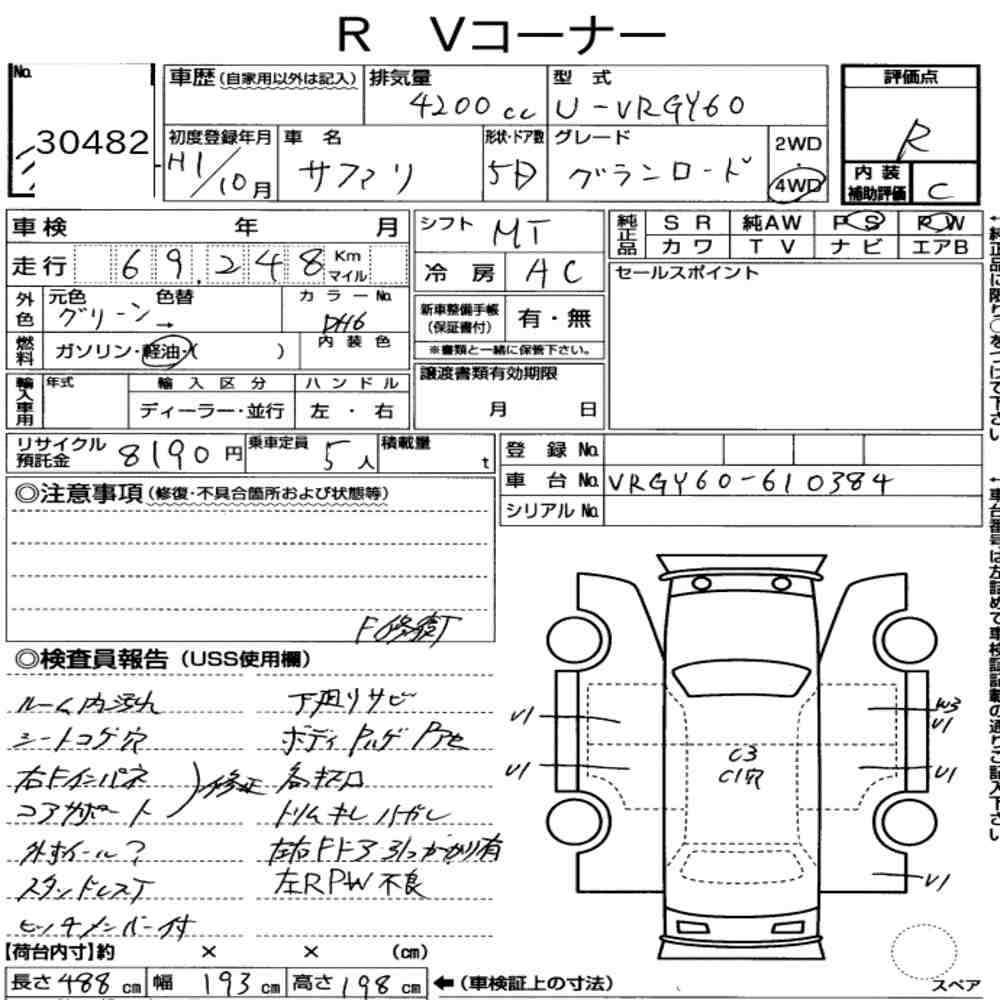 R Vコーナー
No. 30482
車歴(自家用以外は記入) 排気量 4200cc 型式 U-VRGY60
初度登録年月 H1/10月 車名 サファリ 形状・ドア数 5D グレード グランロード 2WD・4WD
評価点 R
内装補助評価 C
車検 年 月
走行 69,248 Km マイル
外色 元色 グリーン 色替 → カラーNo. DH6
燃料 ガソリン・軽油・( ) 内装色
輸入車用 年式 輸入区分 ディーラー・並行 ハンドル 左・右
シフト MT
冷房 AC
新車整備手帳(保証書付) 有・無
※書類と一緒に保管下さい。
譲渡書類有効期限
月 日
純正品 SR 純AW PS RW
カワ TV ナビ エアB
セールスポイント
←純正品に限り○をつけて下さい
リサイクル預託金 8190円 乗車定員 5人 積載量 t
登録No.
車台No. VRGY60-610384
シリアルNo.
←車台番号は左詰めで車検証記載の通りご記入下さい
◎注意事項(修復・不具合箇所および状態等)
F修復
◎検査員報告(USS使用欄)
ルーム内汚れ 下廻りサビ
シートコゲ穴
右Fインパネ 修正 各キズ
コアサポート トリムキレハガレ
外ホイール? 左右Fドア引っかかり有
左RPW不良
ヒッチメンバー付
W3
V1 V1
C3
C1穴
V1 V1
V1
【荷台内寸】約 × × (cm)
長さ488cm 幅193cm 高さ198cm ←(車検証上の寸法)
スペア